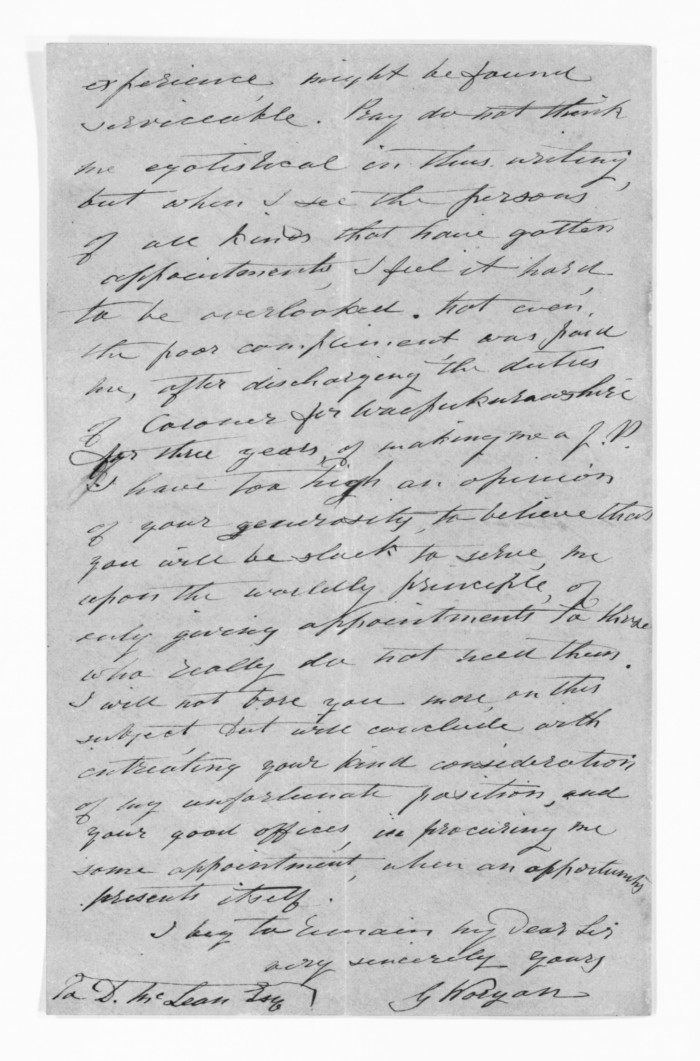 experience, might be found
serviceable. Pray do not think
me egotistical in thus writing,
but when I see the persons
of all kinds that have gotten
appointments, I feel it hard
to be overlooked. Not even
the poor compliment was paid
me, after discharging the duties
of Coroner for Waipukurau shire
for three years, of making me a J.P.
I have too high an opinion
of your generosity, to believe that
you will be slack to serve me
upon the worldly principle, of
only giving appointments to those
who really do not need them.
I will not bore you more on this
subject but will conclude with
entreating your kind consideration
of my unfortunate position, and
your good offices, in procuring me
some appointment, when an opportunity
presents itself.
I beg to remain my Dear Sir
very sincerely yours
G Worgan
To D. McLean Esq